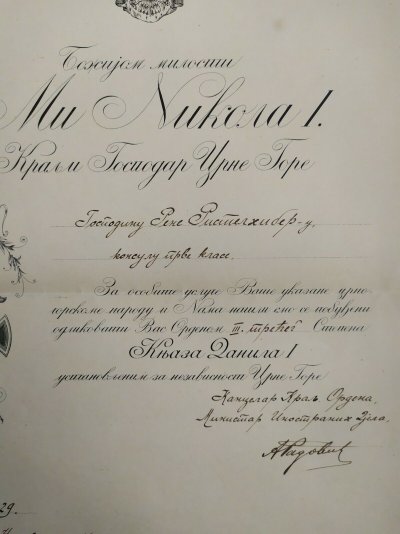 Божијом милости
Ми Никола I.
Краљ и Господар Црне Горе
Господину Рене Ристелхибер-у,
консулу прве класе.
За особите услуге Ваше указане црно-
горскоме народу и Нама нашли смо се побуђени
одликовати Вас Орденом III. трећег Степена
Књаза Данила I
установљеним за независност Црне Горе
Канцелар Краљ. Ордена,
Министар Иностраних Дјела,
А Радовић
29.